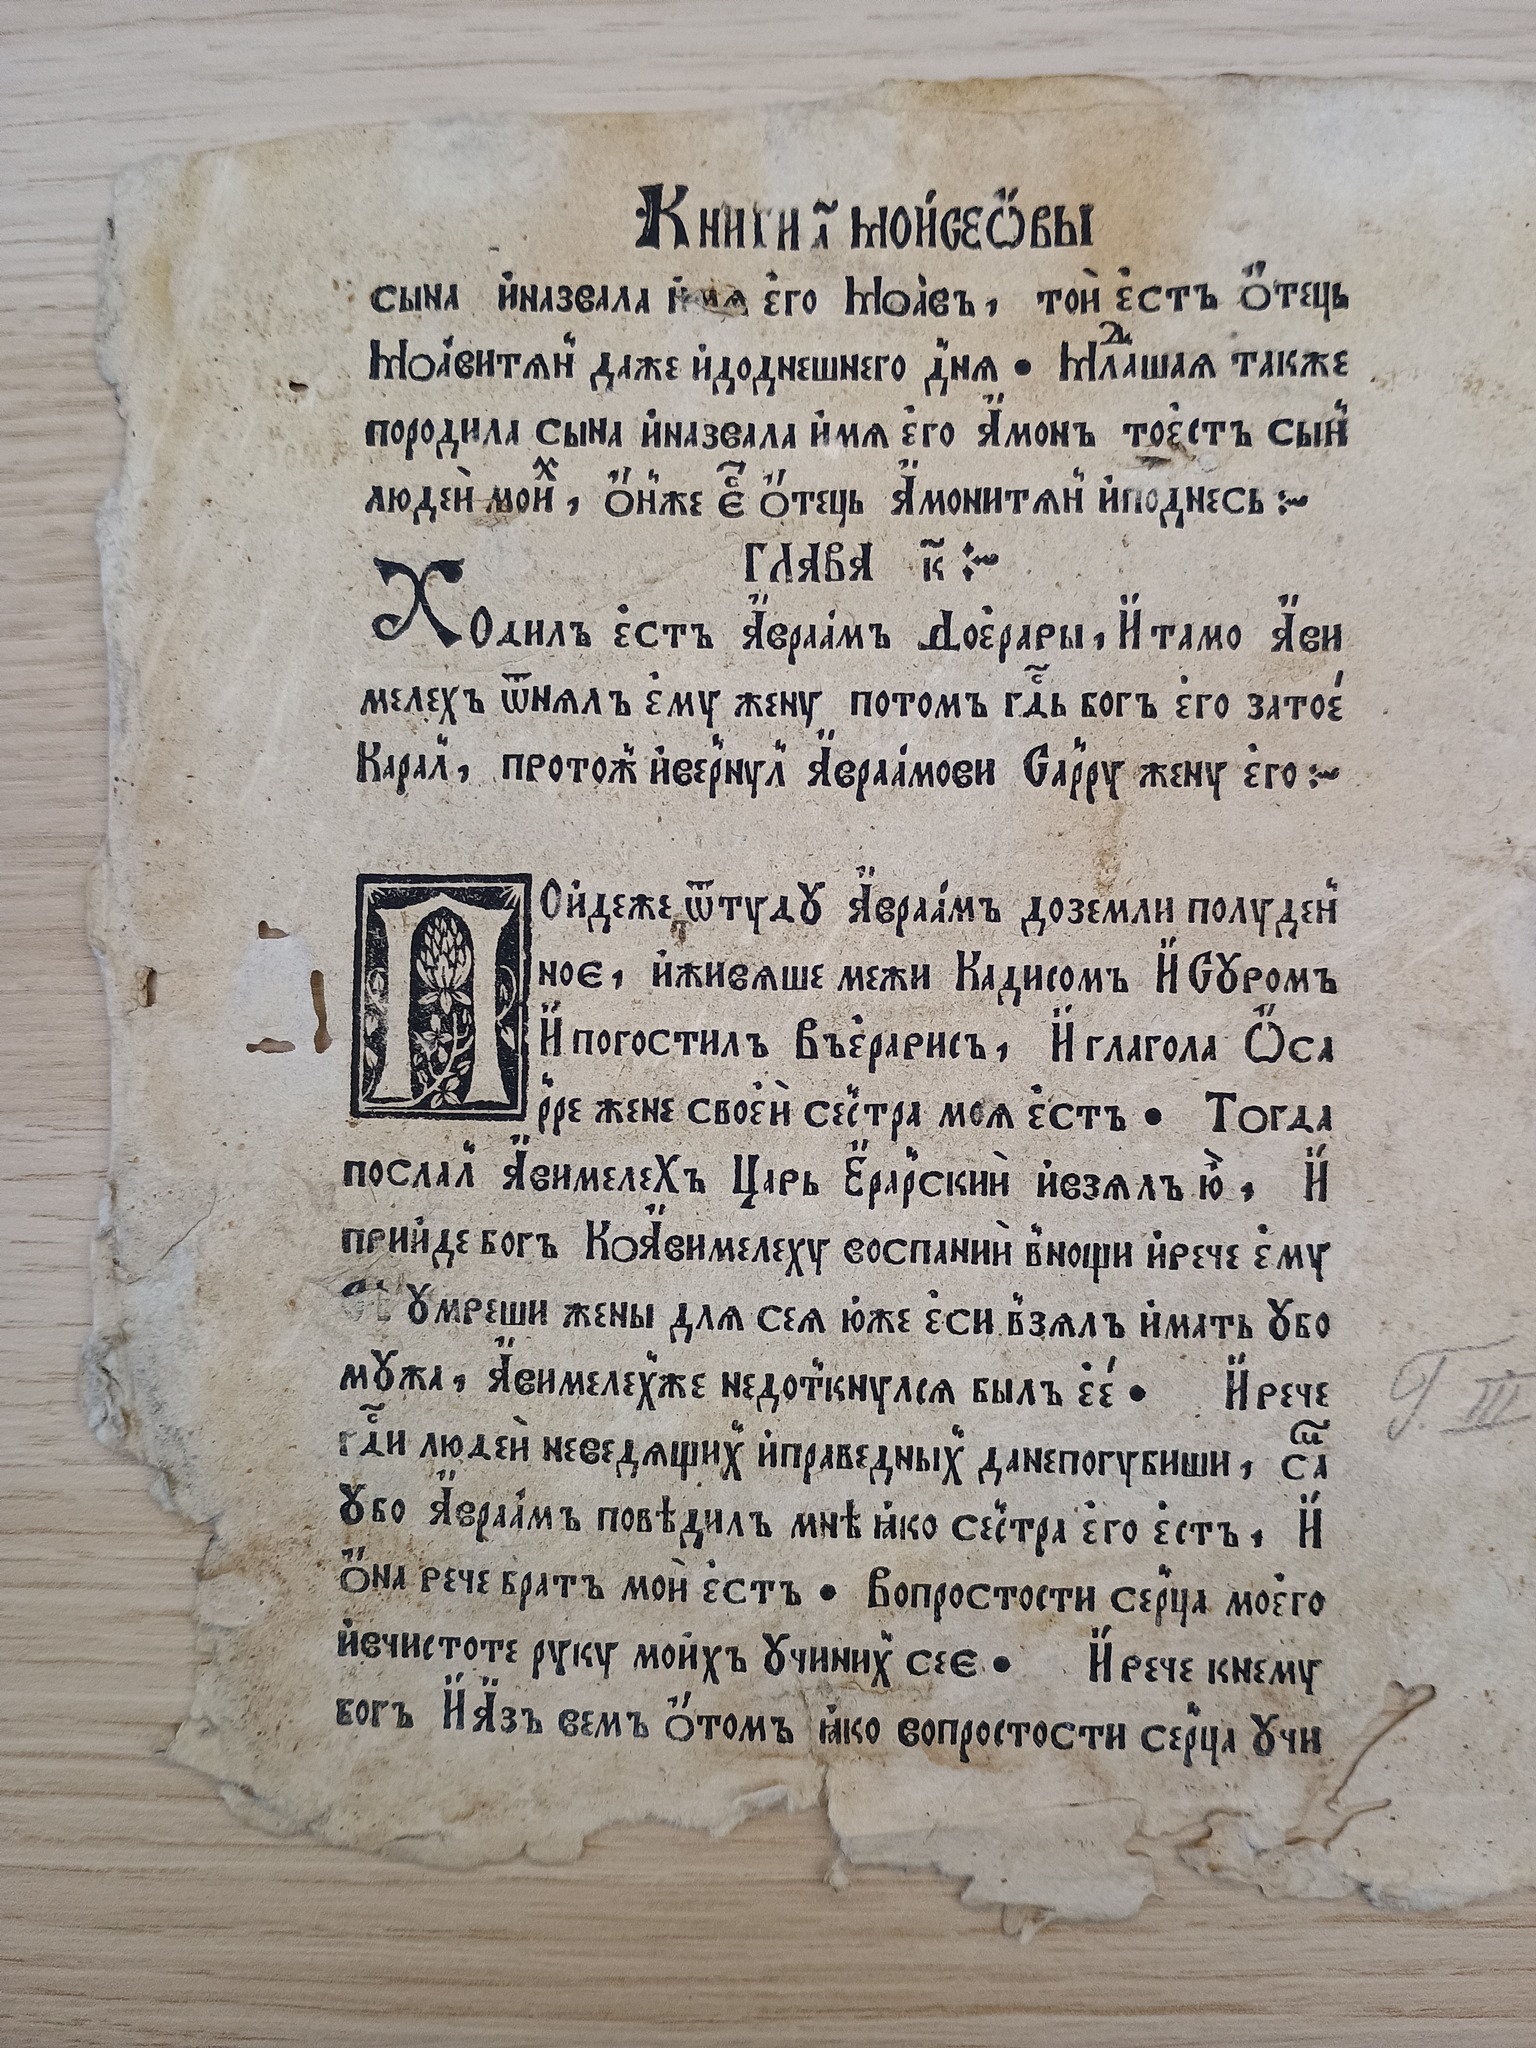 Книги а҃ Мои́сеѡ҆вы
сына и҆назвала и҆мя є҆го Моа́въ, той є҆стъ О҆тець
Моа́витѧн даже и҆додн​ешнего дн҆ѧ • Млⷣашаѧ также
породила сына и҆назвала и҆мѧ є҆го А҆монъ тоє҆стъ сын
людей мои҆ⷯ, О҆нже є҆с҃ О҆тець А҆монитѧн и҆поднесь :~
ГЛАВА к҃ :~
ХОдилъ є҆стъ А҆враа́мъ Доє҆рары, И҆ тамо А҆ви
мелехъ ѿнѧлъ є҆му жену потомъ гдⷭ҇ь богъ є҆го затое́
Карал, протож и҆вернул А҆враа́мови Сарру жену є҆го :~
ПОи҆деже ѿтудꙋ А҆враа́мъ доземли полуден
ное, и҆живѧше межи Кадисомъ И҆ Сꙋромъ
И҆ погостилъ Въє҆рарисъ, И҆ глагола Ѡ҆са
рре жене своє҆й сестра моѧ є҆стъ • Тогда
послал А҆вимелеХъ Царь Є҆рарский и҆взѧлъ ю҆, И҆
прии҆де богъ КоА҆вимелеху воспаний внощи и҆рече є҆му
ꙋмреши жены длѧ сеѧ ю҆же є҆си взѧлъ и҆мать ꙋбо
мꙋжа, А҆вимелехже недоткнулсѧ былъ є҆е́ • И҆ рече
гдⷭ҇и людей неведѧщих и҆праведных данепогубиши, сⷡ҇а
ꙋбо А҆враа́мъ повѣдилъ мнѣ ꙗ҆ко сестра є҆го є҆стъ, И҆
О҆на рече братъ мой є҆стъ • Вопростости серца моє҆го
и҆вчистоте руку мои҆хъ ꙋчиних сее • И҆ рече кнему
богъ И҆ А҆зъ вемъ О҆томъ ꙗ҆ко вопростости серца ꙋчи